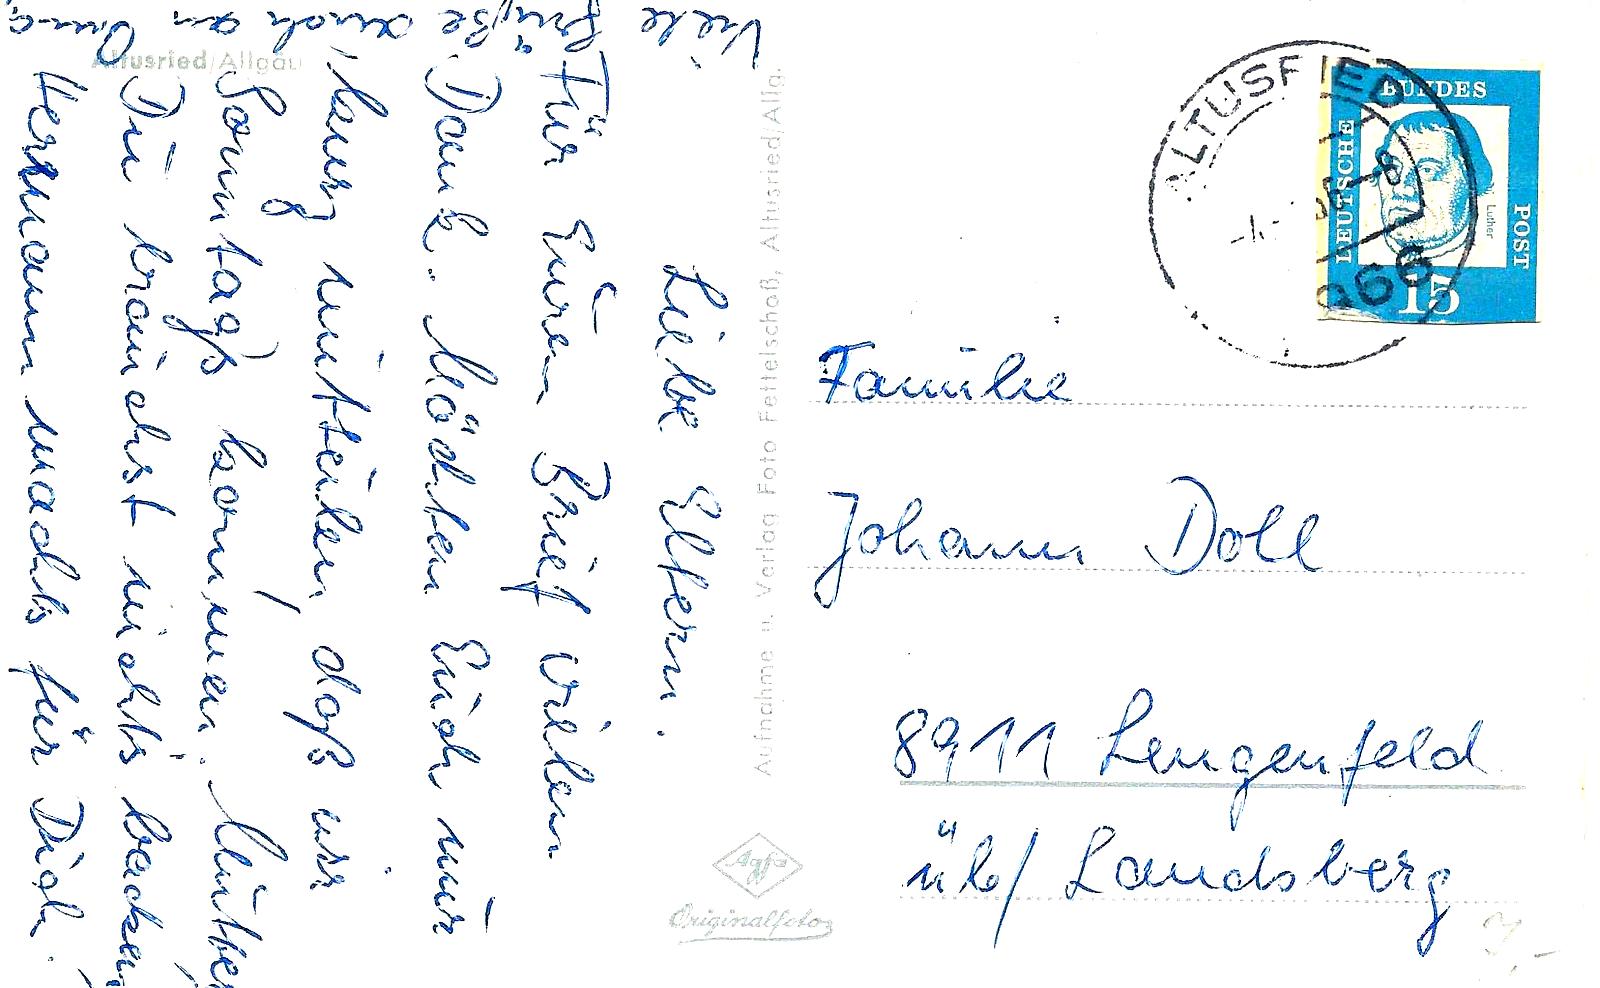 Altusried/Allgäu
Liebe Eltern.
Für Euren Brief vielen
Dank. Möchten Euch nur
kurz mitteilen, daß wir
Sonntags kommen. Mutter,
Du brauchst nichts backen,
Hermann machts für Dich.
Viele Grüße auch an Oma
Aufnahme u. Verlag Foto Fettelschoß, Altusried/Allg.
Agfa
Originalfoto
ALTUSRIED
DEUTSCHE
BUNDES
POST
Luther
15
Familie
Johann Doll
8911 Lengenfeld
üb/ Landsberg